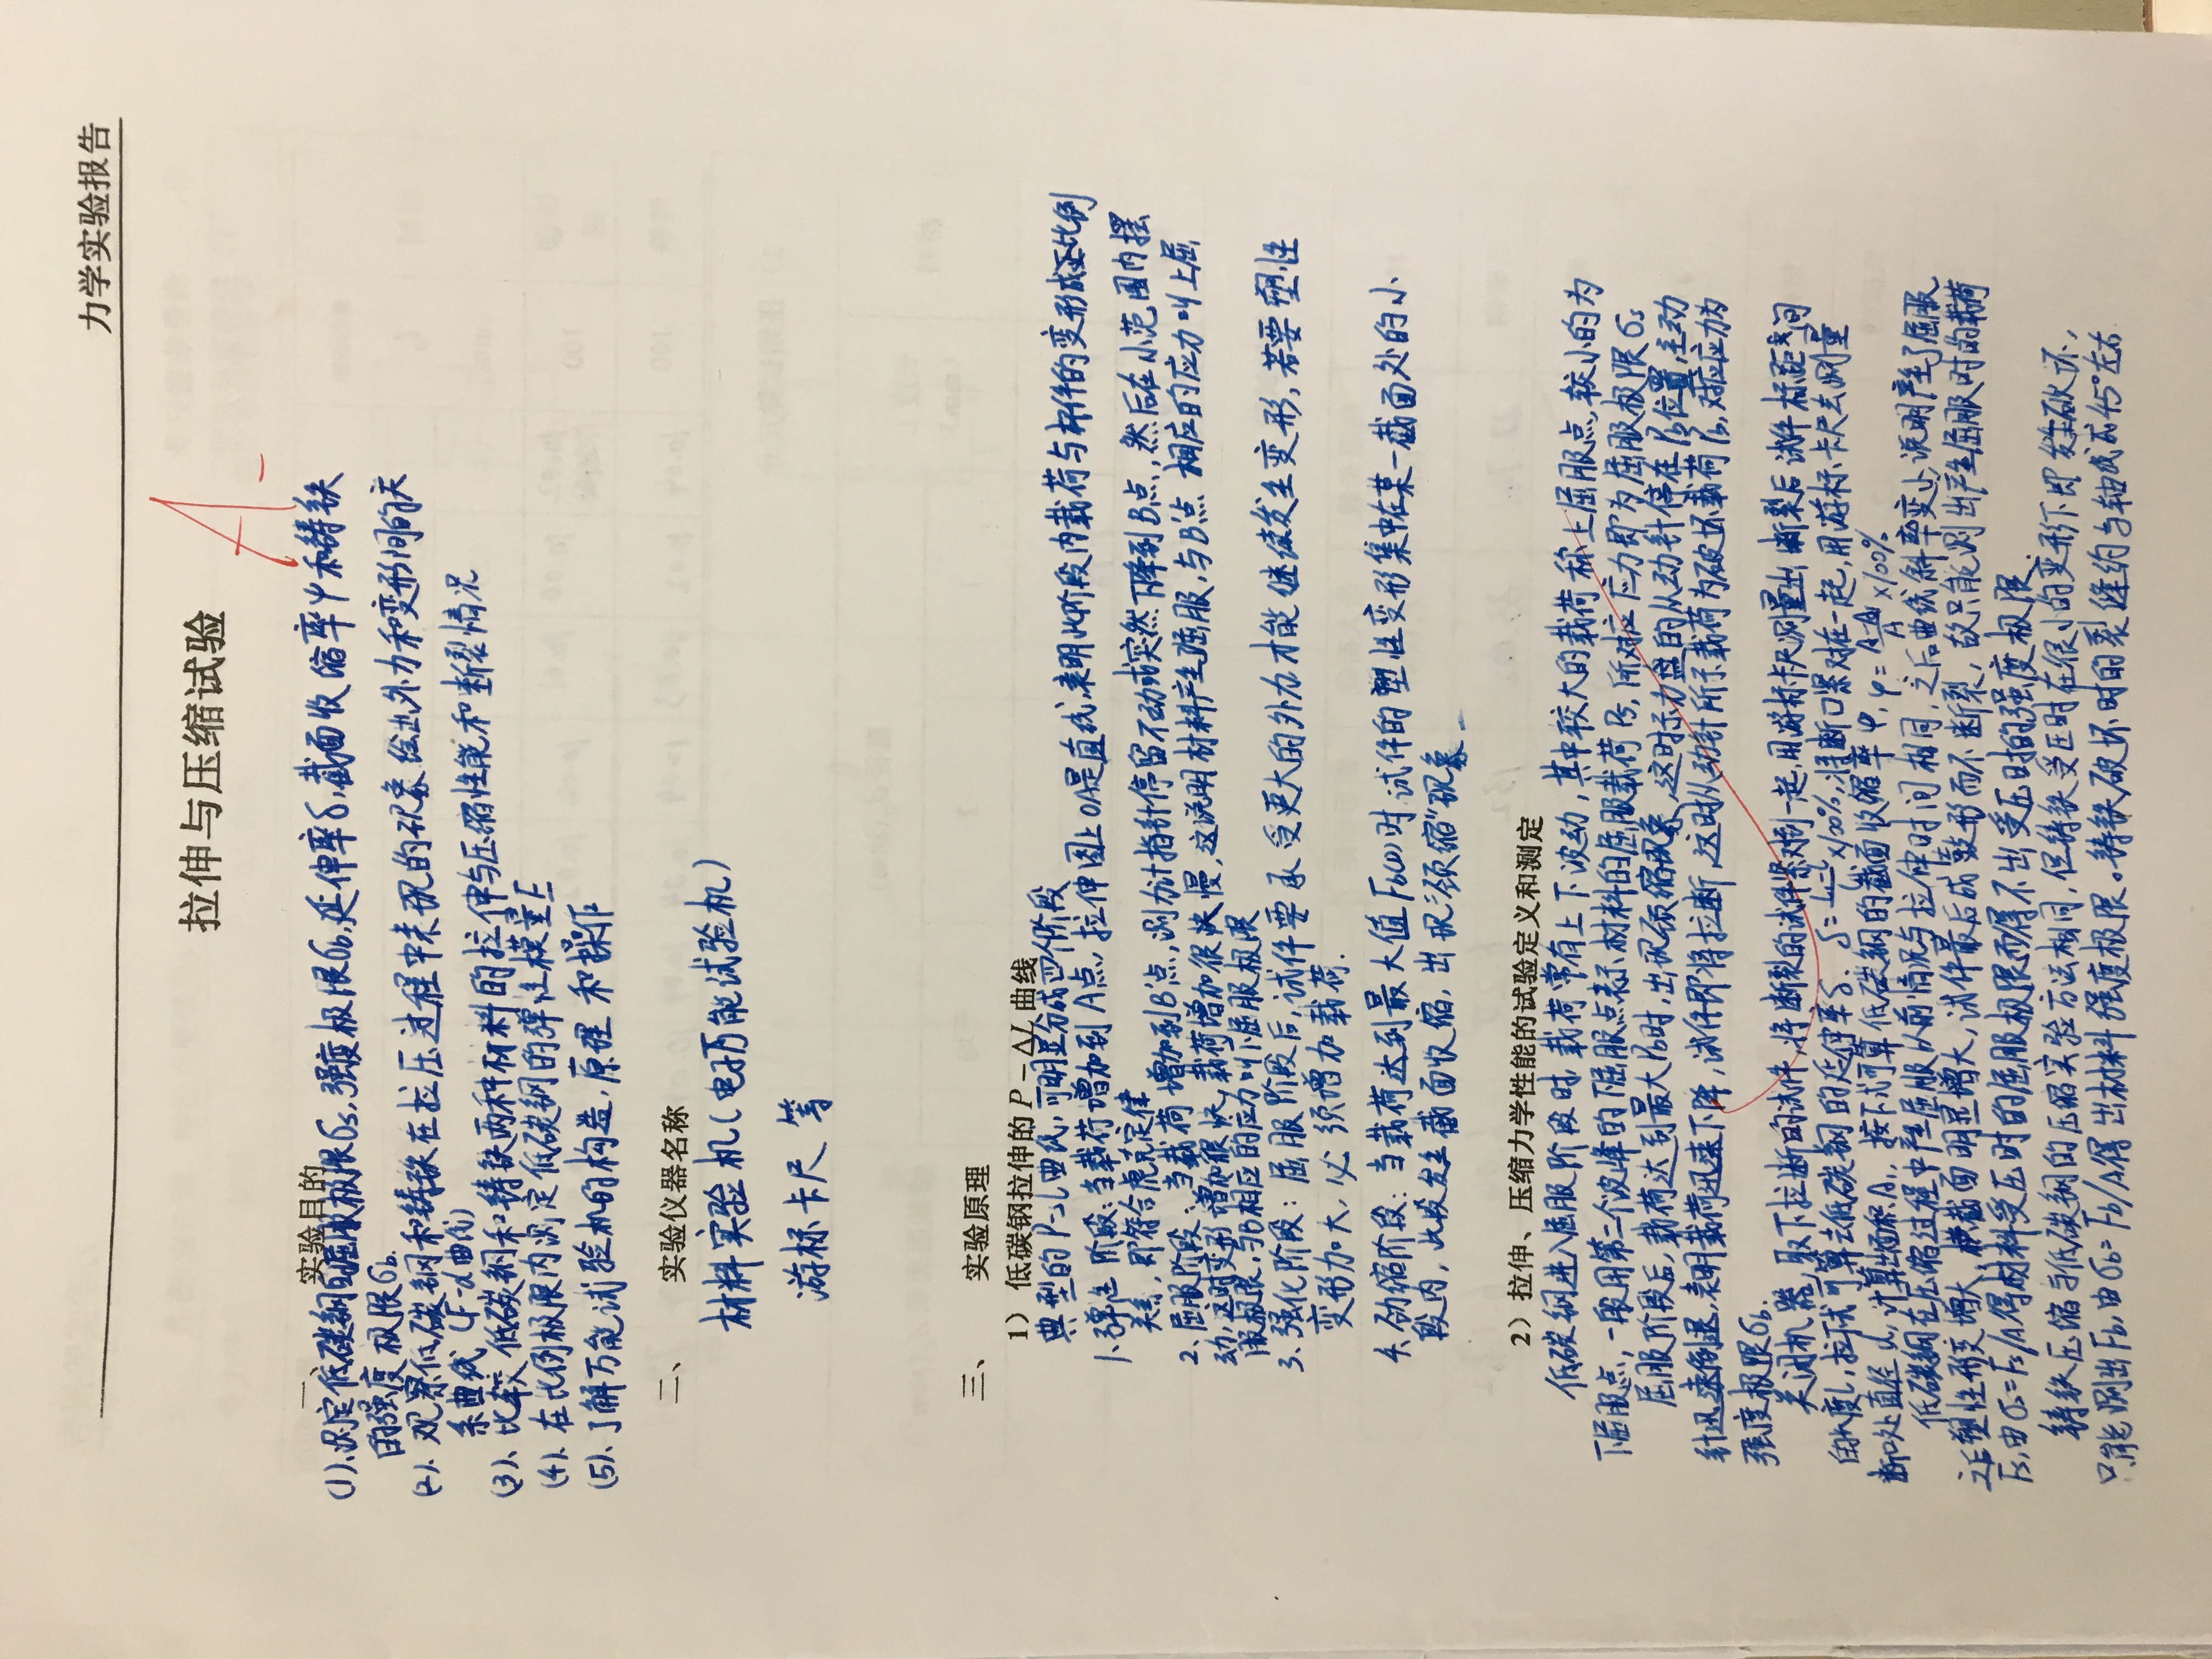 力学实验报告
拉伸与压缩试验
A-
一、 实验目的
(1)、测定低碳钢的屈服极限σs,强度极限σb,延伸率δ,截面收缩率ψ和铸铁
的强度极限σb.
(2)、观察低碳钢和铸铁在拉压过程中表现的现象绘出外力和变形间的关
系曲线(F-d曲线)
(3)、比较低碳钢和铸铁两种材料的拉伸与压缩性能和断裂情况
(4)、在比例极限内测定低碳钢的弹性模量E
(5)、了解万能试验机的构造,原理和操作
二、 实验仪器名称
材料实验机(电子万能试验机)
游标卡尺 等
三、 实验原理
1) 低碳钢拉伸的P-ΔL曲线
典型的P-ΔL曲线,可明显分成四个阶段
1、弹性阶段:当载荷增加到A点,拉伸图上OA是直线,表明此阶段内载荷与杆件的变形成正比例
关系,即符合虎克定律
2、屈服阶段:当载荷增加到B'点,测力计指针停留不动或突然下降到B点,然后在小范围内摆
动,这时变形增加很快,载荷增加很快慢,这说明材料产生屈服,与B'点相应的应力叫上屈
服极限,与B相应的应力叫下屈服极限
3、强化阶段:屈服阶段后,试件要承受更大的外力才能继续发生变形,若要塑性
变形加大,必须增加载荷.
4.劲缩阶段:当载荷达到最大值Fb(D)时试件的塑性变形集中在某一截面处的小
段内,此段发生截面收缩,出现"颈缩"现象
2)拉伸、压缩力学性能的试验定义和测定
低碳钢进入屈服阶段时,载荷常有上下波动,其中较大的载荷称上屈服点,较小的为
下屈服点,一般用第二个波峰的下屈服点表示材料的屈服载荷Ps,所对应应力即为屈服极限σs
屈服阶段后,载荷达到最大Pb时,出现颈缩现象,这时示力盘的从动针停在Pb位置,主动
针迅速倒退,表明载荷迅速下降,试件即将拉断,这时从动针所示载荷为破坏载荷Pb,对应应力为
强度极限σb.
关闭机器,取下拉断的试件,将断裂的试件紧对到一起,用游标卡尺测量出断裂后试件标距间
的长度l,按下式可算去低碳钢的延伸率δ. δ=(l₁-l)/l×100%,将断口紧对在一起,用游标卡尺去测量
断口处直径d,计算出面积A₁,按下式可算低碳钢的截面收缩率φ,φ=(A-A₁)/A×100%
低碳钢在压缩过程中产生屈服以前情况与拉伸时间相同,之后曲线斜率变小,说明产生了屈服
之后塑性形变增大,横截面明显增大,试件最后成鼓形而不断裂,故只能测出产生屈服时的载荷
Fs,由σs=Fs/A得材料受压时的屈服极限而得不出受压时的强度极限.
铸铁压缩与低碳钢的压缩实验方法相同,但铸铁受压时在很小的变形下即发生破坏,
只能测出Fb,由σb=Fb/A得出材料强度极限。铸铁破坏时的裂缝约与轴线成45°左右